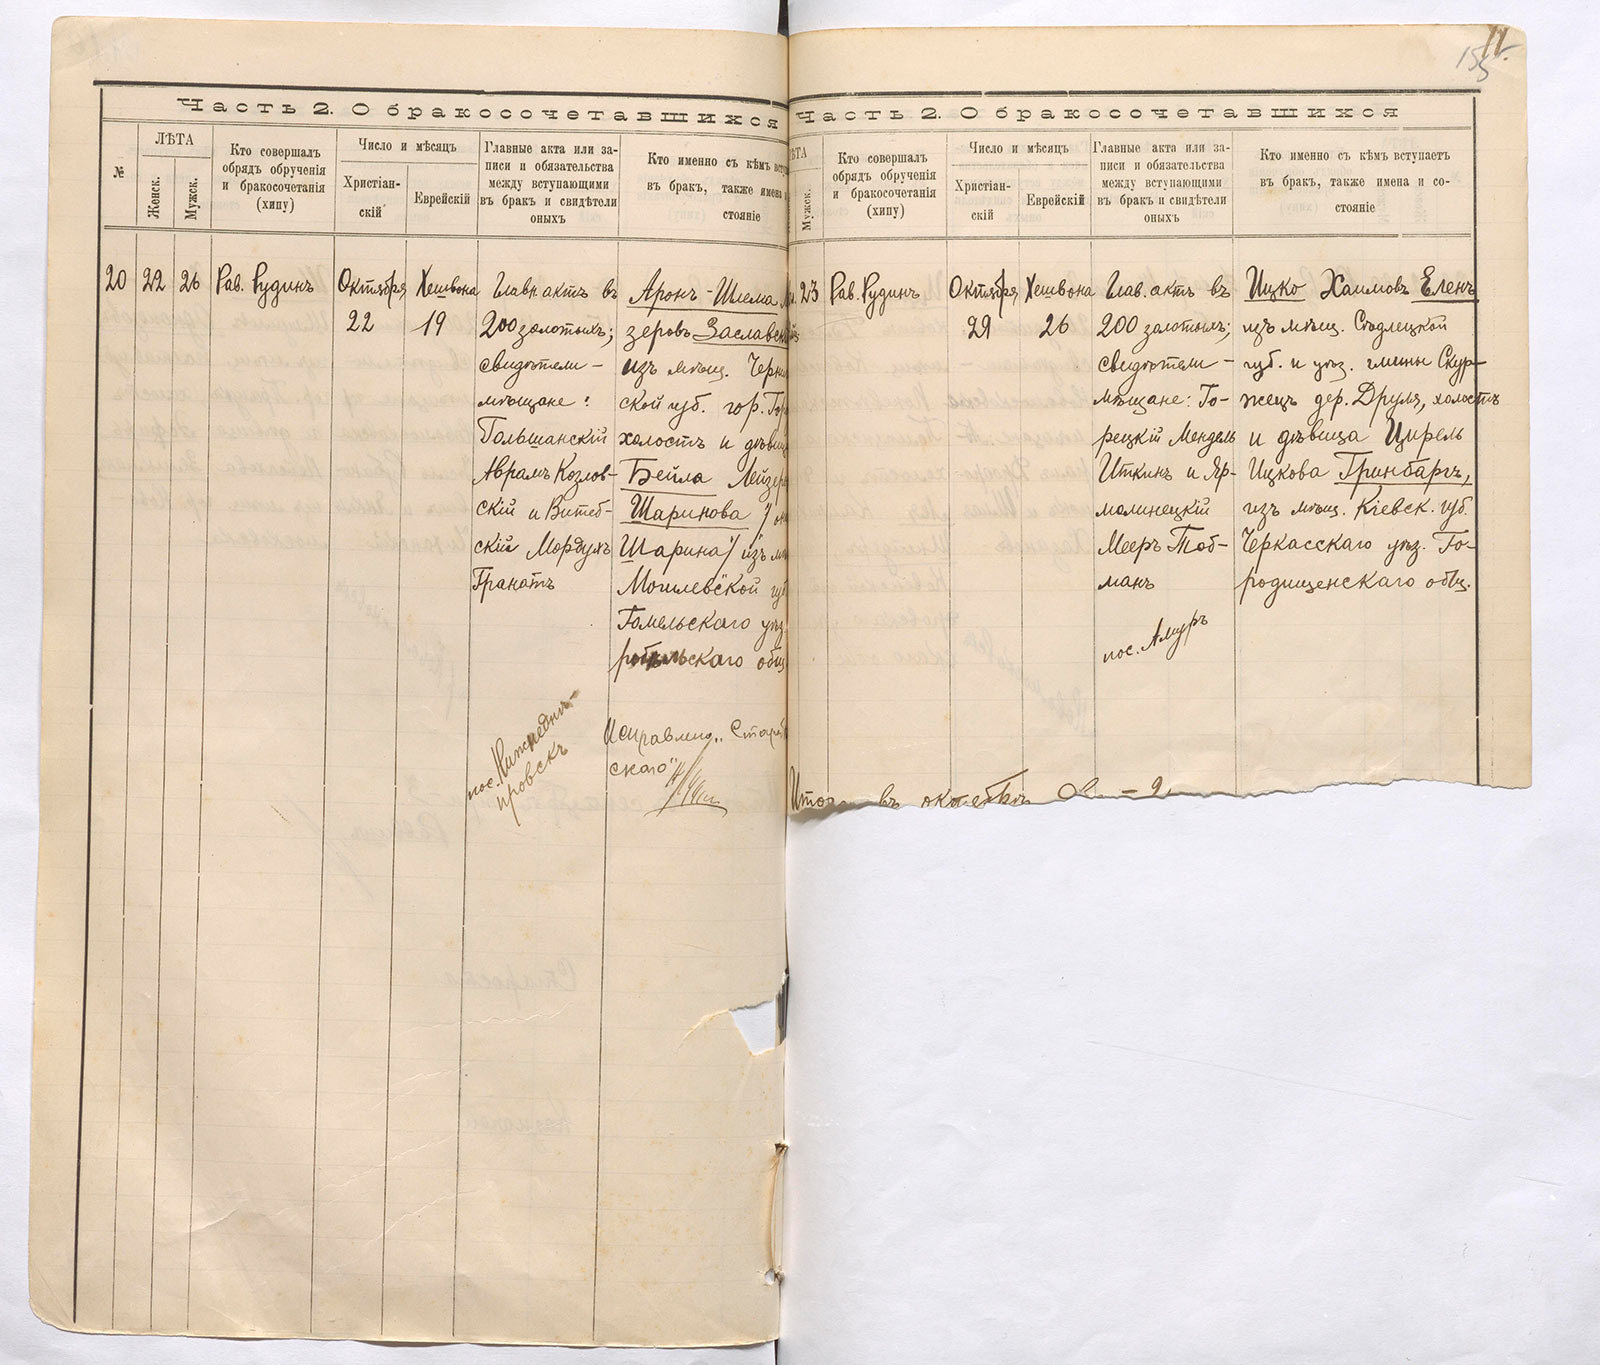 Часть 2. О бракосочетавшихся
№
ЛѢТА
Женск.
Мужск.
Кто совершалъ
обрядъ обрученія
и бракосочетанія
(хипу)
Число и мѣсяцъ
Христіан-
скій
Еврейскій
Главные акта или за-
писи и обязательства
между вступающими
въ бракъ и свидѣтели
оныхъ
Кто именно съ кѣмъ вступ
въ бракъ, также имена и
стояніе
20
22
26
Рав. Рудинъ
Октября
22
Хешвона
19
Главн. актъ въ
200 золотыхъ;
свидѣтели –
мѣщане:
Гольшанскій
Аврамъ Козлов-
скій и Витеб-
скій Мордухъ
Гранатъ
пос. Нижнеднѣ-
провскъ
Аронъ-Шлема
зеровъ Заславск
изъ мѣщ. Черн
ской губ. гор. Го
холостъ и дѣвиц
Бейла Лейзер
Шаринова
Шарина) изъ м
Могилевской губ
Гомельскаго уѣз.
скаго общ
Исправлено „Стар
скаго“
155
Часть 2. О бракосочетавшихся
ѢТА
Мужск.
Кто совершалъ
обрядъ обрученія
и бракосочетанія
(хипу)
Число и мѣсяцъ
Христіан-
скій
Еврейскій
Главные акта или за-
писи и обязательства
между вступающими
въ бракъ и свидѣтели
оныхъ
Кто именно съ кѣмъ вступаетъ
въ бракъ, также имена и со-
стояніе
23
Рав. Рудинъ
Октября
29
Хешвона
26
Глав. актъ въ
200 золотыхъ;
свидѣтели –
мѣщане: Го-
рецкій Мендель
Иткинъ и Яр-
молинецкій
Мееръ Тоб-
манъ
пос. Амуръ
Ицко Хаимовъ Еленъ
изъ мѣщ. Сѣдлецкой
губ. и уѣз. гмины Скур-
жецъ дер. Друля, холостъ
и дѣвица Цирель
Ицкова Гринбаргъ,
изъ мѣщ. Кіевск. губ.
Черкасскаго уѣз. Го-
родищенскаго общ.
Итого въ октябрѣ